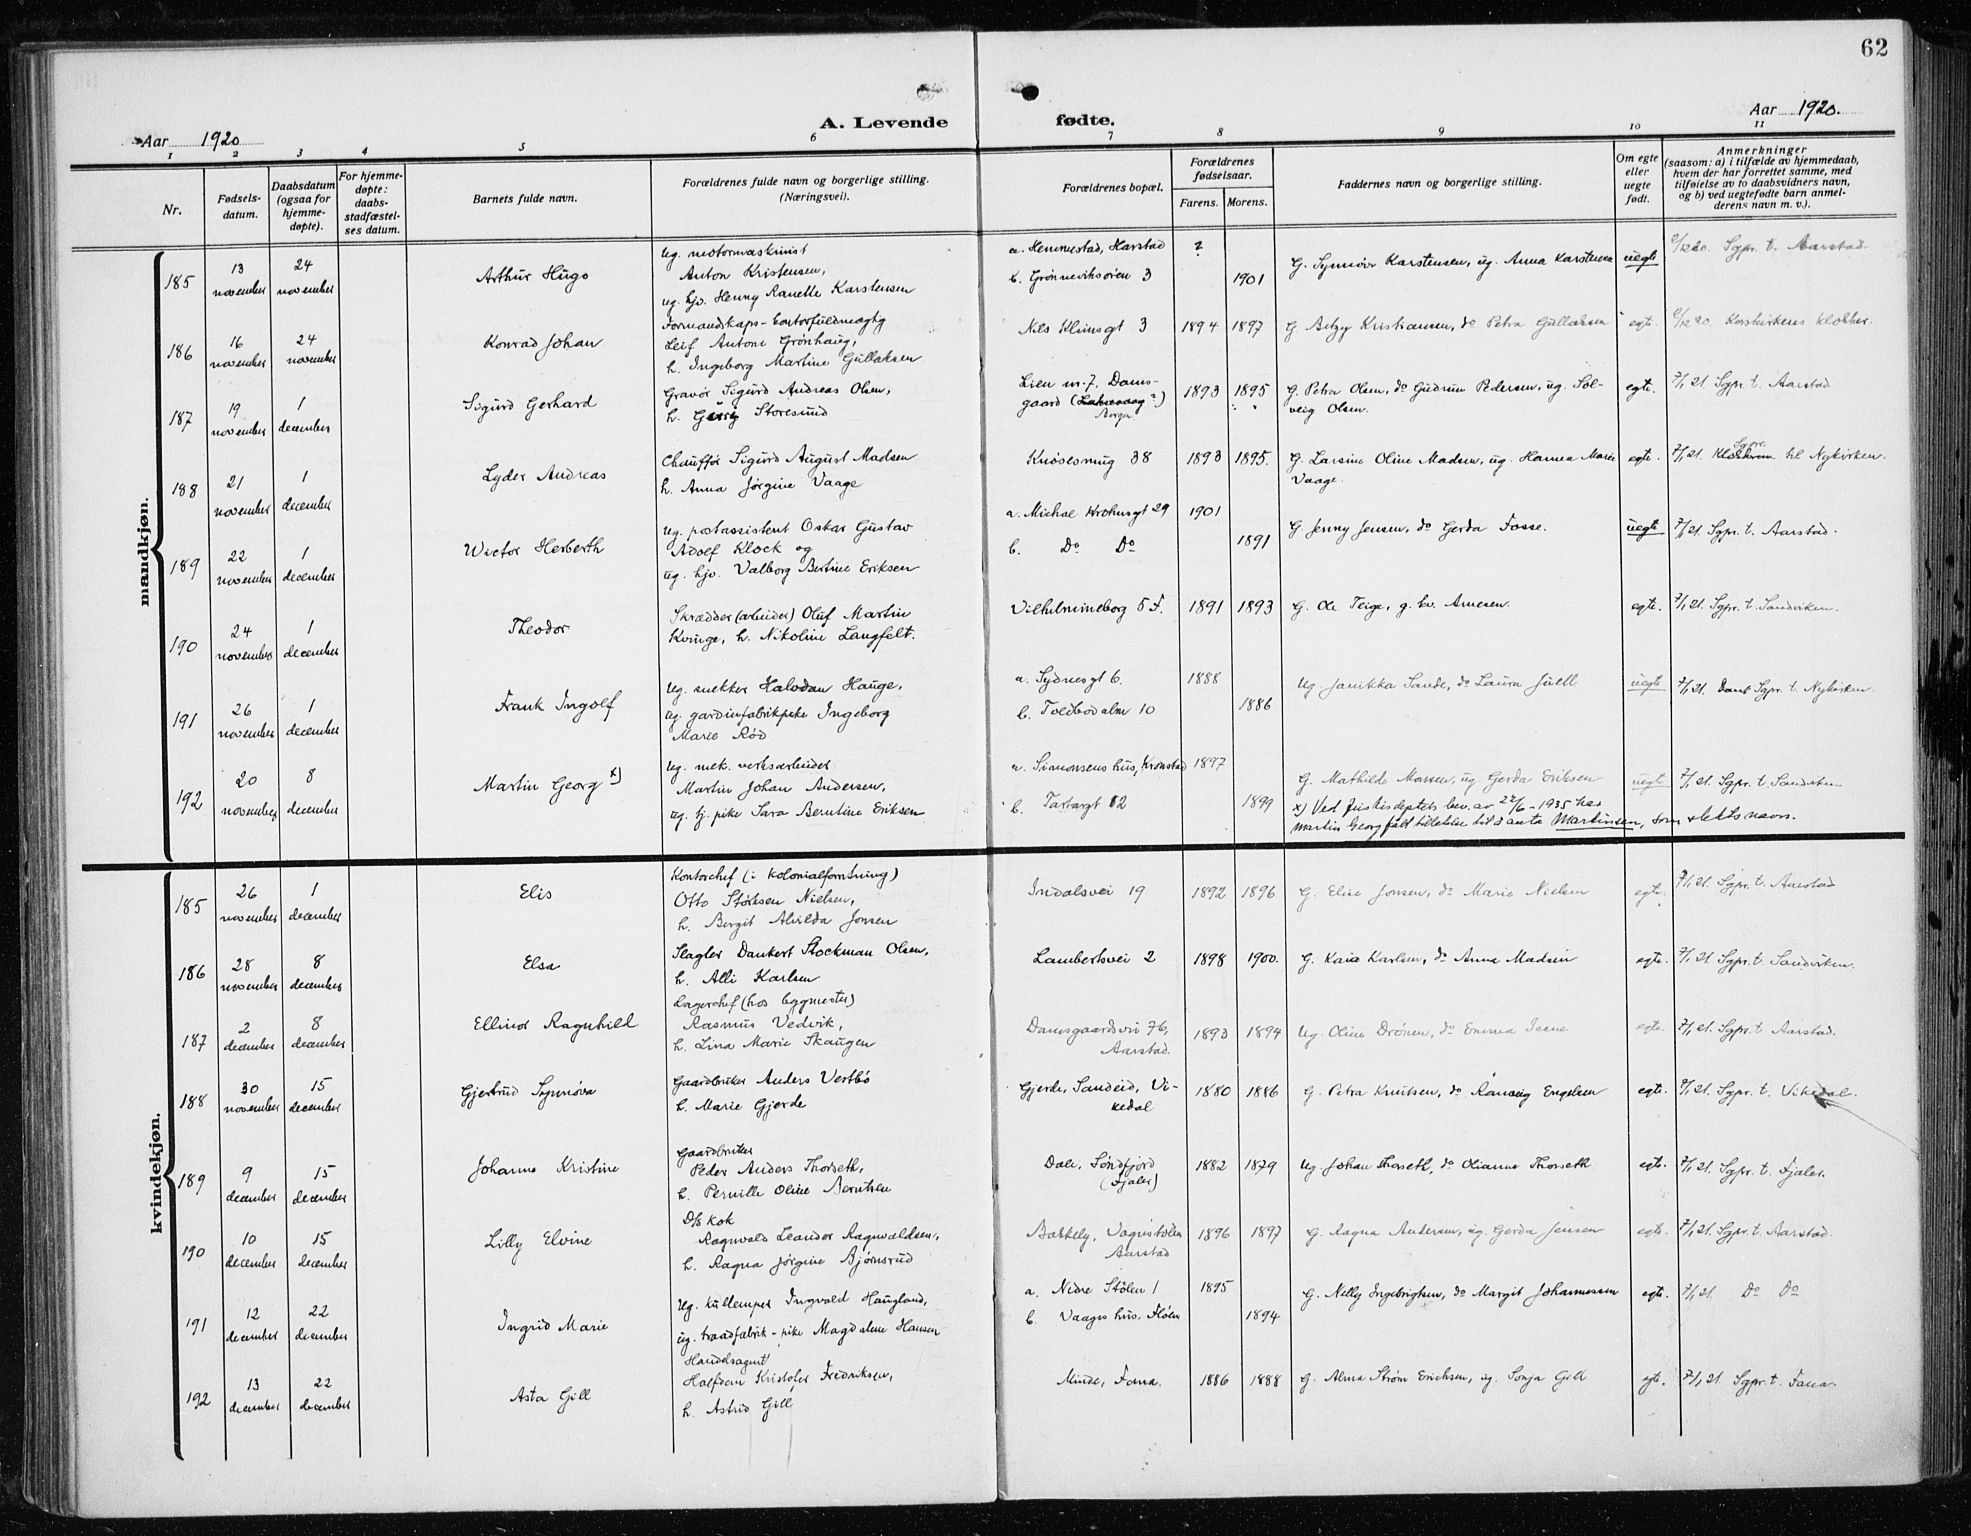 62
Aar 1920
A. Levende fødte.
Aar 1920.
1 2 3 4 5 6 7 8 9 10 11
Nr.
Fødsels-
datum.
Daabsdatum
(ogsaa for
hjemme-
døpte).
For hjemme-
døpte:
daabs-
stadfæstel-
ses datum.
Barnets fulde navn.
Forældrenes fulde navn og borgerlige stilling.
(Næringsvei).
Forældrenes bopæl.
Forældrenes
fødselsaar.
Farens. Morens.
Faddernes navn og borgerlige stilling.
Om egte
eller
uegte
født.
Anmerkninger
(saasom: a) i tilfælde av hjemmedaab,
hvem der har forrettet samme, med
tilføielse av to daabsvidners navn,
og b) ved uegtefødte barn anmel-
derens navn m. v.).
mandkjøn.
185
13
november
24
november
Arthur Hugo
ug. motormaskinist
Anton Kristensen,
ug. hjv. Henny Ranette Karstensen
a. Hemmestad, Harstad ?
b. Grønneviksøien 3 1901
G. Synnøve Karstensen, ug. Anna Karstensen uegte
Sgpr. t. Aarstad.
186
16
november
24
november
Konrad Johan
Formandskaps-kontorfuldmægtig
Leif Antoni Grønhaug,
h. Ingeborg Martine Gullaksen
Nils Klimsgt 3 1894 1897
G. Betzy Kristiansen, do Petra Gullaksen egte.
Korskirkens klokker.
187
19
november
1
december
Sigurd Gerhard
Gravør Sigurd Andreas Olsen,
h. Storesund
Lien nr. 7, Dams-
gaard (Laksevaag?)
Bergen
1893 1895
G. Petra Olsen, do Gudrun Pedersen, ug. Sol-
veig Olsen.
egte. 7/1 21. Sgpr. t. Aarstad
188
21
november
1
december
Lyder Andreas
Chauffør Sigurd August Madsen
h. Anna Jørgine Vaage
Knøsesmug 38 1893 1895.
G. Larsine Oline Madsen, ug. Hanna Marie
Vaage.
egte. 7/1 21. til Nykirken.
189
22
november
1
december
Wictor Herberth
ug. postassistent Oskar Gustav
Adolf Klock og
ug. hjv. Valborg Bertine Eriksen
a. Michael Krohnsgt 29 1901
b. Do Do 1891
G. Jenny Jensen, do Gerda Fosse. uegte
7/1 21. Sgpr. t. Aarstad.
190
24
november
1
december
Theodor
Skrædder (arbeider) Oluf Martin
Kvinge, h. Nikoline Langfelt.
Vilhelmineborg 5 F. 1891 1893
G. Ole Teige, g. hv. Arnesen. egte.
7/1 21. Sgpr. t. Sandviken.
191
26
november
1
december
Frank Ingolf
ug. snekker Halvdan Hauge,
ug. gardinfabrikpike Ingeborg
Marie Rød
a. Sydnesgt 6. 1888
b. Toldbodalm 10 1886
ug. Janikka Sande, do Laura Juell uegte
7/1 21. Sgpr. t. Nykirken.
192
20
november
8
december
Martin Georg x)
ug. mek. verksarbeider
Martin Johan Andersen,
ug. tj. pike Sara Berntine Eriksen
a. Simonsens hus, Kronstad 1897
b. Tartargt 12 1899
G. Mathilde Monsen, ug. Gerda Eriksen uegt
7/1 21. Sgpr. t. Sandviken
x) Ved Justisdeptets bev. av 24/6-1935 har
Martin Georg fått tillatelse til å anta Martinsen, som slektsnavn.
kvindekjøn.
185
26
november
1
december
Elis
Kontorchef (i kolonialforretning)
Otto Størksen Nielsen,
h. Bergit Alvilda Jonsen
Inndalsvei 19 1892 1896
G. Elise Jonsen, do Marie Nielsen egte.
7/1 21. Sgpr. t. Aarstad
186
28
november
8
december
Elsa
Slagter Dankert Stockman Olsen,
h. Alli Karlsen
Lambertsvei 2 1898 1900.
G. Kaia Karlsen, do Anna Madsen egte.
7/1 21. Sgpr. t. Sandviken.
187
2
december
8
december
Ellinor Ragnhild
Lagerchef (hos bygmester)
Rasmus Vedvik,
h. Lina Marie Skaugen
Damsgaardsvei 76,
Aarstad.
1893 1894
ug. Oline Drönen, do Emma Isene egte.
7/1 21. Sgpr. t. Aarstad.
188
30
november
15
december
Gjertrud Synnøva
Gaardbruker Anders Vestbø
h. Marie Gjerde
Gjerde, Sandeid, Vi-
kedal
1880 1886
G. Petra Knutsen, do Rannveig Engelsen egte.
7/1 21. Sgpr. t. Vikedal.
189
9
december
15
december
Johanne Kristine
Gaardbruker
Peder Anders Thorseth,
h. Pernille Oline Berntsen
Dale, Søndfjord
(Fjaler)
1882 1879
ug Johan Thorseth, do Olianna Thorseth egte.
7/1 21. Sgpr. t. Fjaler.
190
10
december
15
december
Lilly Elvine
D/s kok
Ragnvald Leander Ragnvaldsen,
h. Ragna Jørgine Bjørnsrud
Bakkely, Vognstølen
Aarstad
1896 1897
G. Ragna Andersen, ug. Gerda Jensen egte.
7/1 21. Sgpr. t. Aarstad.
191
12
december
22
december
Ingrid Marie
ug. kullemper Ingvald Haugland,
ug. traadfabrik-pike Magdalene Hansen
a. Nedre Stølen 1 1895
b. Vaages hus, Fløen 1894
G. Nelly Ingebrigtsen, do Margit Johannessen egte.
7/1 21. Do Do
192
13
december
22
december
Asta Gill
Handelsagent
Halfdan Kristofer Fredriksen,
h. Astrid Gill
Minde, Fana. 1886 1888
G. Alma Strøm Erichsen, ug. Sonja Gill egte.
7/1 21. Sgpr. t. Fana.